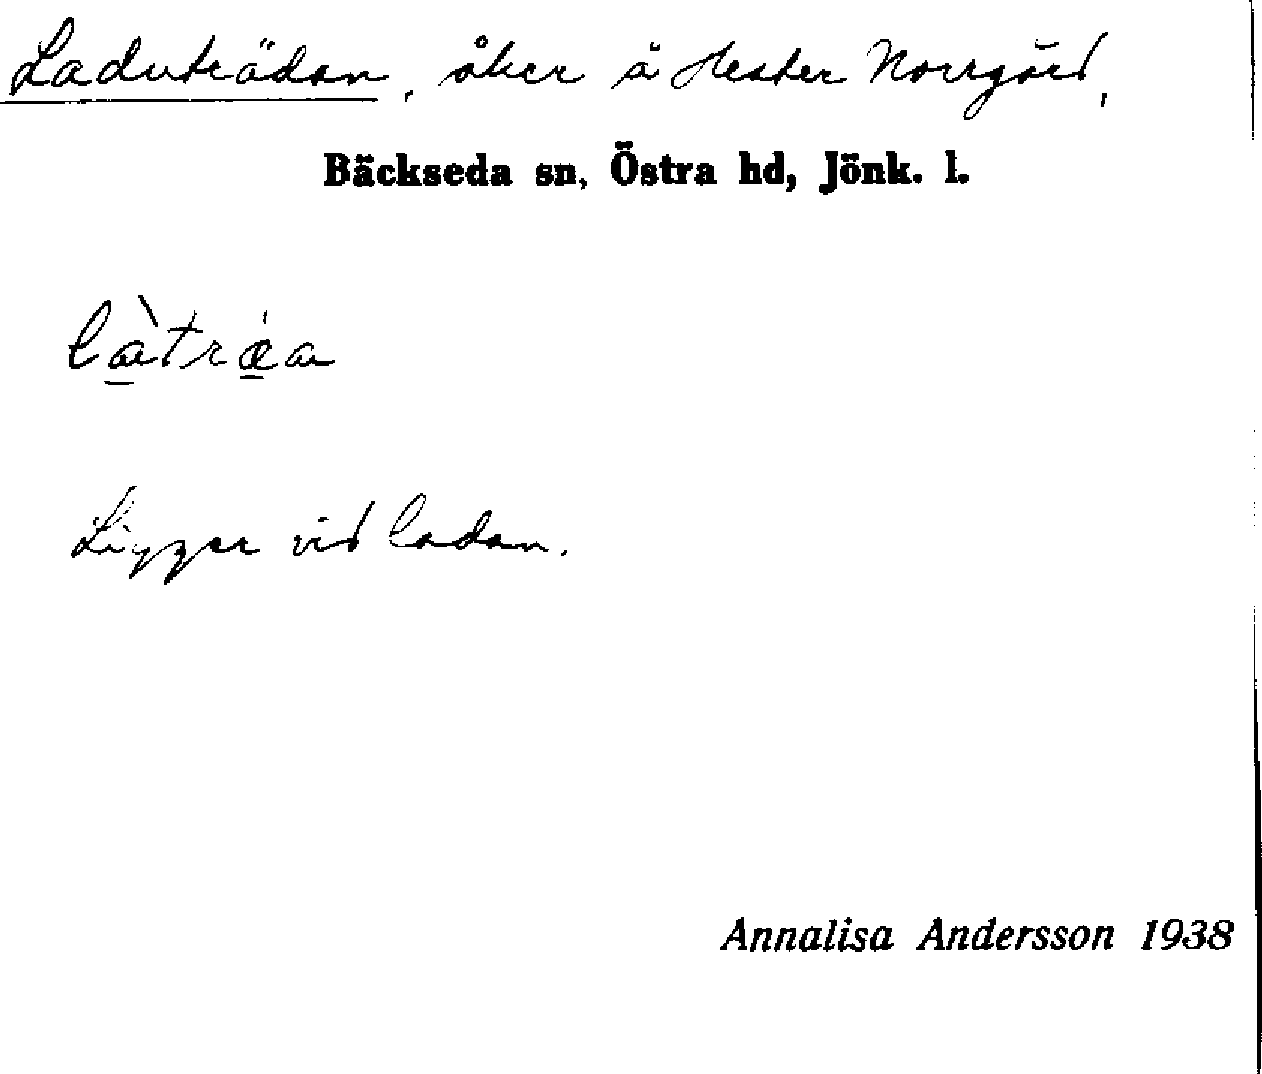 Laduträdan, åker å Hester Norrgård,
Bäckseda sn, Östra hd, Jönk. l.
là̱trǽ̱a
Ligger vid ladan.
Annalisa Andersson 1938